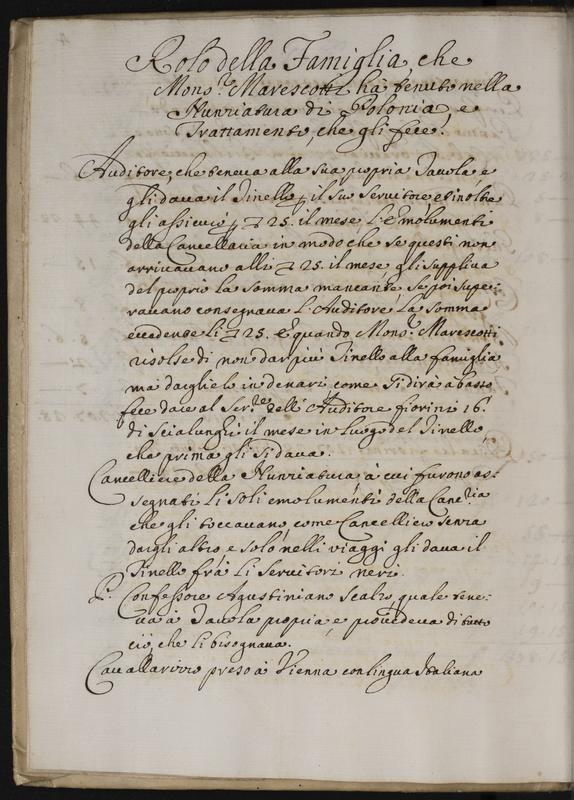 Rolo della Famiglia, che
Mons.r Marescotti hà tenuto nella
Nunziatura di Polonia, e
Trattamento, che gli fece.
Auditore, che teneva alla sua propria Tavola e
gli dava il Tinello p il suo Servitore, et inoltre
gli assicurò p 25. il mese l'emolumenti
della Cancellaria in modo che se questi non
arrivavano alli 25. il mese gli suppliva
del proprio la somma mancante, se poi supe-
ravano consegnava l'Auditore la somma
eccedente li 25. E quando Mons.r Marescotti
risolse di non dar più Tinello alla famiglia
mà darglielo in denari come si dirà à basso
fece dare al Ser.re dell'Auditore fiorini 16.
di Scialunghi il mese in luogo del Tinello,
che prima gli si dava.
Cancelliere della Nunziatura à cui furono as-
segnati li soli emolumenti della Canc.ria
che gli toccavano, come Cancelliere senza
dargli altro, e solo nelli viaggi gli dava il
Tinello frà li Servitori neri.
P. Confessore Agostiniano Scalzo, quale tene-
va à Tavola propria, e provedeva di tutto
ciò, che li bisognava.
Cavallarizzo preso à Vienna con lingua Italiana